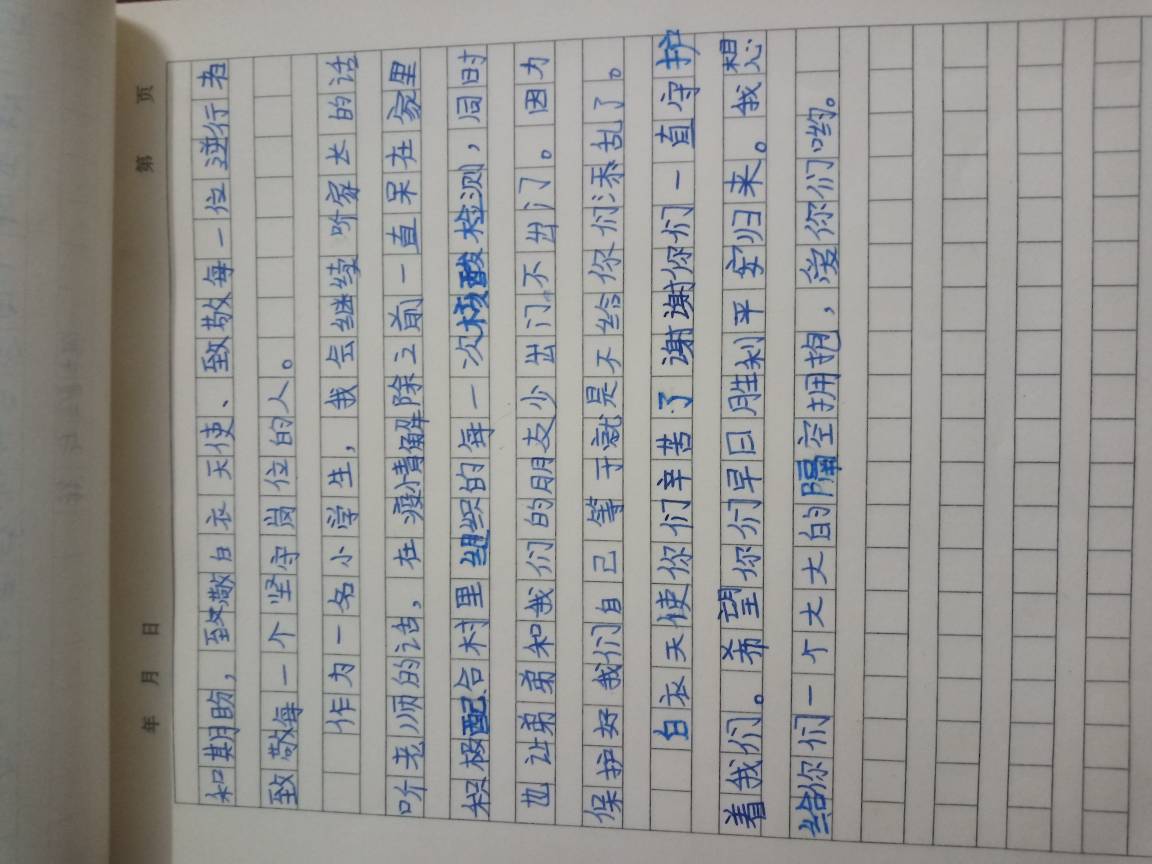 年 月 日 第 页
和期盼，致敬白衣天使、致敬每一位逆行者
致敬每一个坚守岗位的人。
作为一名小学生，我会继续听家长的话
听老师的话，在疫情解除之前一直呆在家里
积极配合村里组织的每一次核酸检测，同时
也让弟弟和我们的朋友少出门，不出门。因为
保护好我们自己等于就是不给你们添乱了。
白衣天使你们辛苦了谢谢你们一直守护
着我们。希望你们早日胜利平安归来。我想
给你们一个大大的隔空拥抱，爱你们哟。